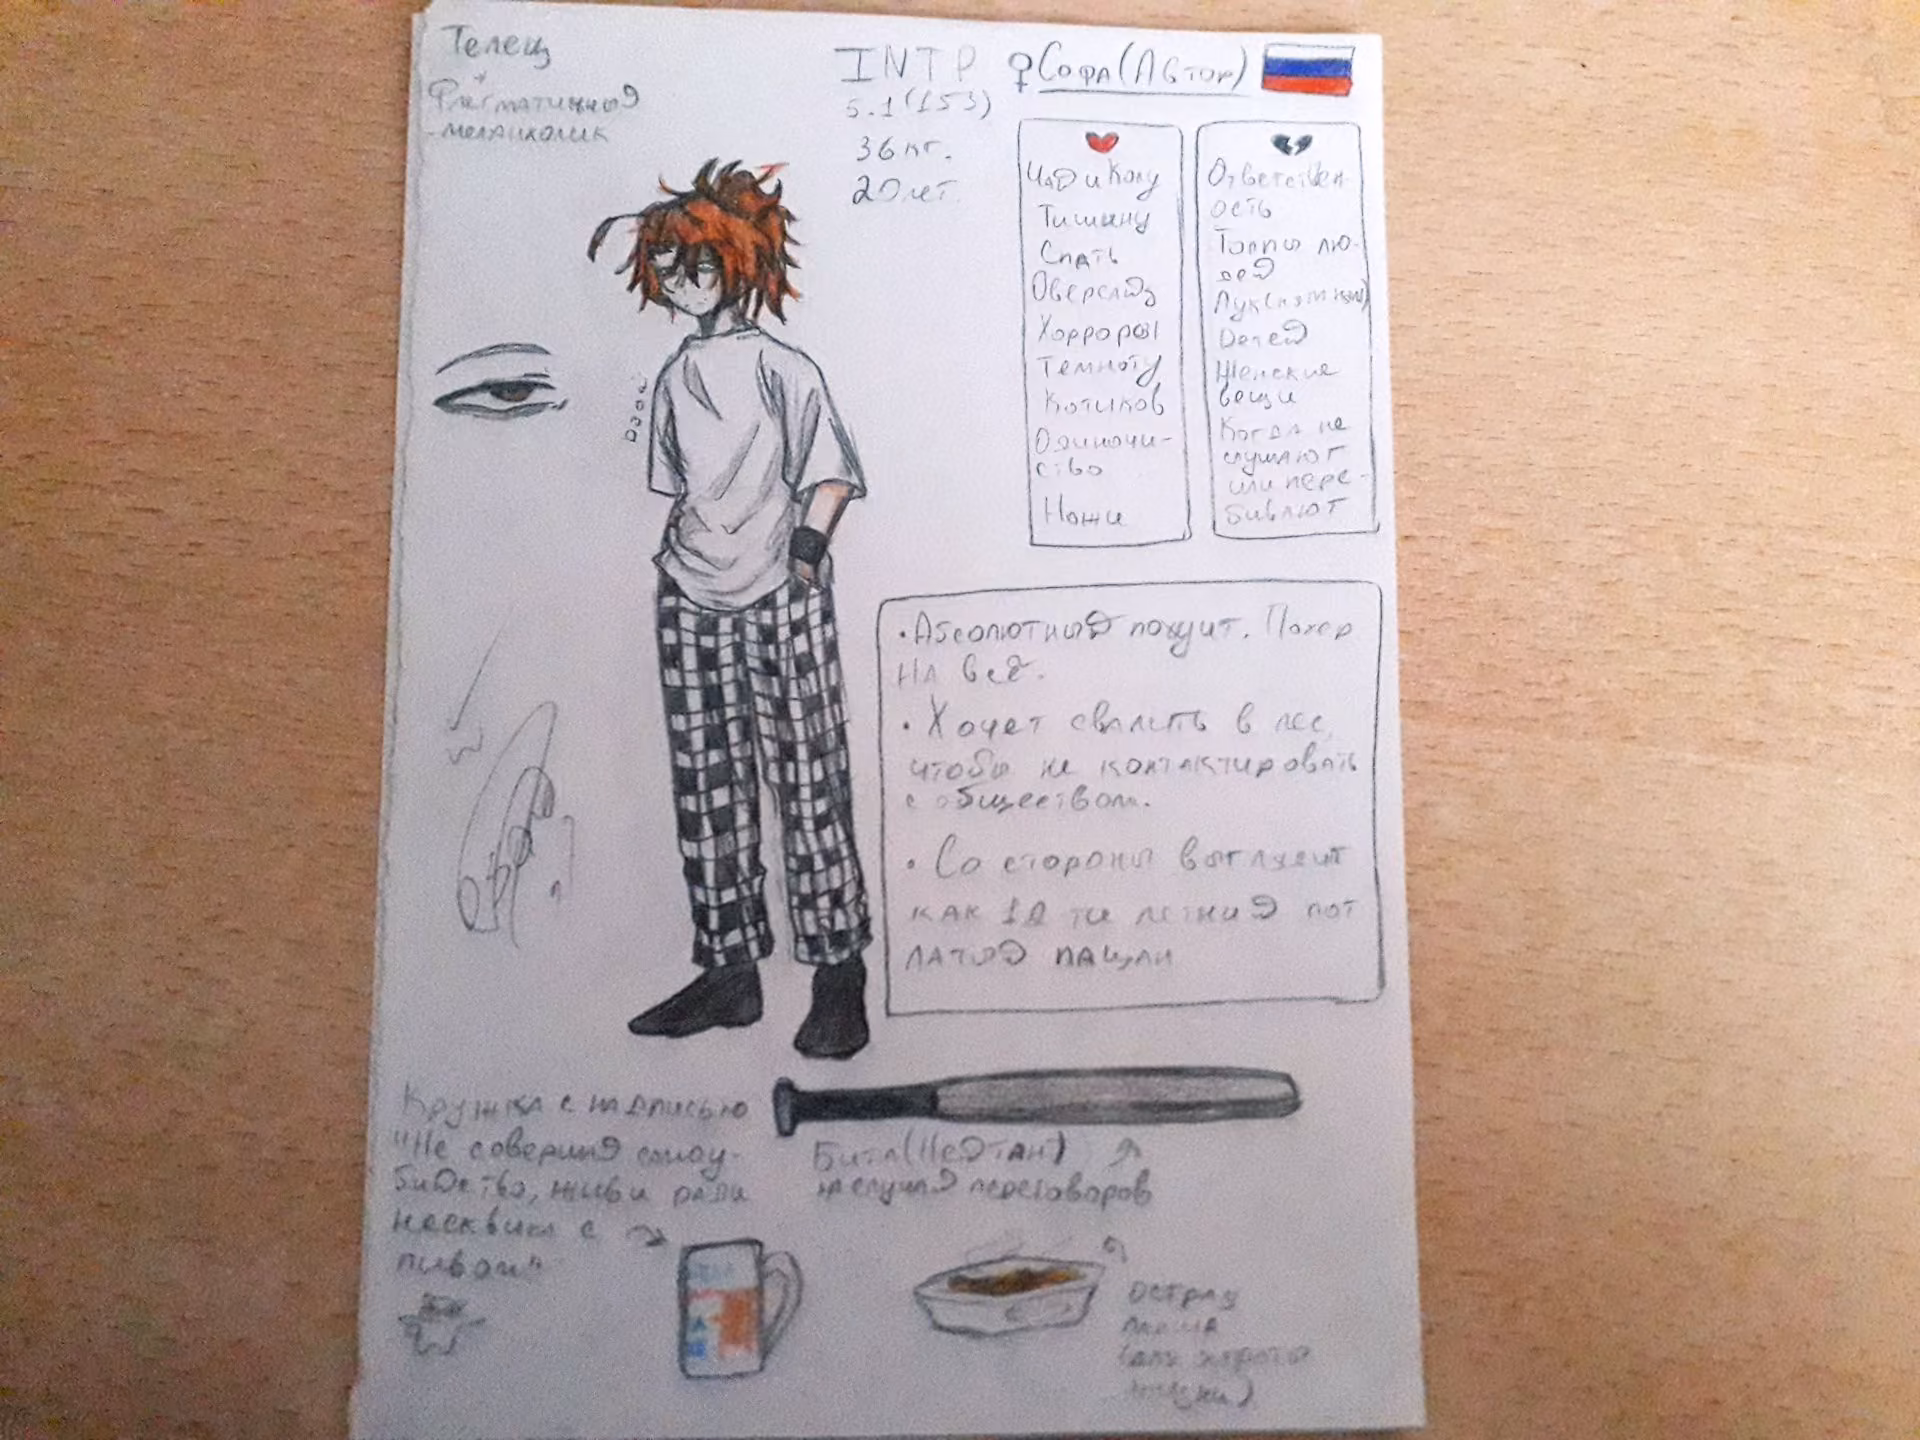 Телец
+
Флегматичный
-меланхолик
INTP
5.1(153)
36 кг.
20 лет.
♀Софа(Автор)
Чай и Колу
Тишину
Спать
Оверсайз
Хорроры
Темноту
Котиков
Одиночи-
ство
Ножи
Ответствен-
ость
Толпы лю-
дей
Детей
Женские
вещи
Когда не
слушают
или пере-
бивают
•Абсолютный похуит. Похер
на всё.
•Хочет свалить в лес,
чтобы не контактировать
с обществом.
•Со стороны выглядит
как 12 ти летний пот
латой пацан
Кружка с надписью
"Не совершай самоу-
бийство, живи ради
несквика с
пивом"
Бита(Нейтан)
на случай переговоров
острая
лапша